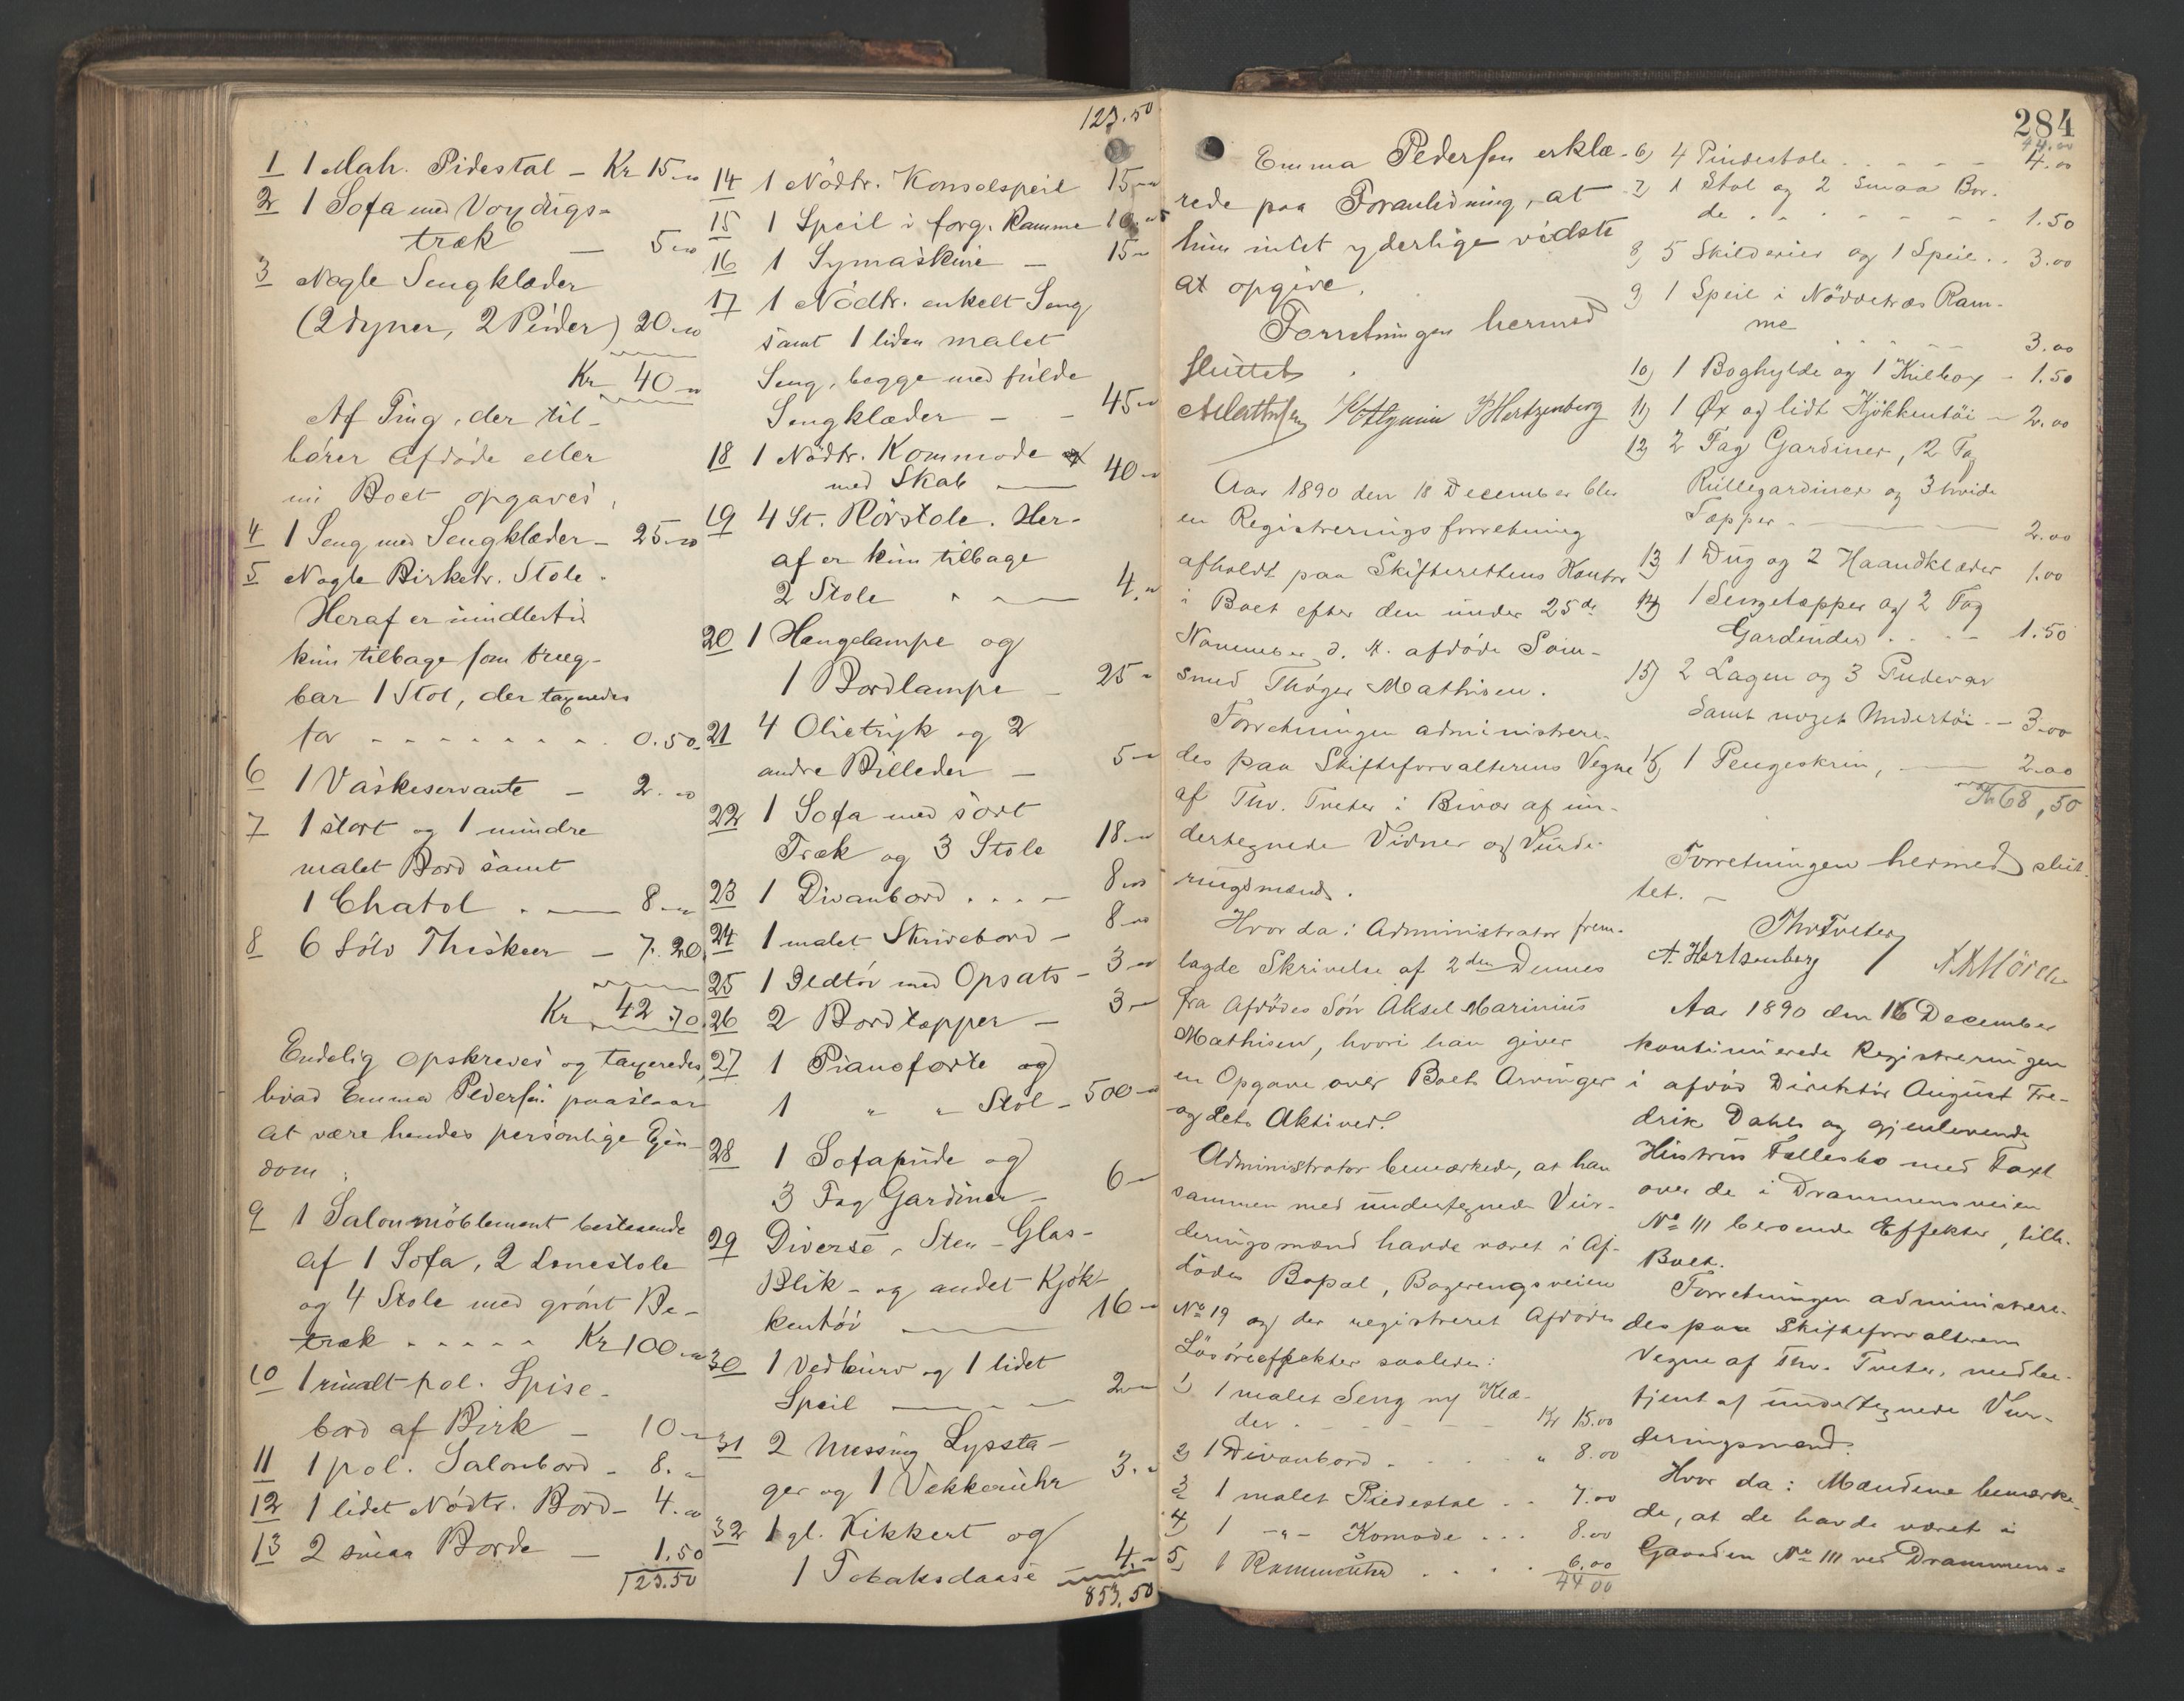 1 1 Mah. Pidestal - Kr 15.00
2 1 Sofa med Voxdugs-
træk - 5.00
3 Nogle Sengklæder
(2 dyner, 2 Puder) 20.00
Kr 40.00
Af Ting, der til-
hører Afdøde eller
nu Boet opgaves,
4 1 Seng med Sengklæder - 25.00
5 Nogle Birketr. Stole.
Heraf er imidlertid
kun tilbage som brug-
bar 1 Stol, der taxeredes
for - - - - - - - - 0.50
6 1 Vaskeservante - 2.00
7 1 stort og 1 mindre
malet Bord samt
1 Chatol . — 8.00
8 6 Sölv Theskeer - 7.20
Kr 42.70
Endelig opskreves og taxeredes,
hvad Emma Pedersen paastaar
at være hendes personlige Ejen-
dom:
9 1 Salonmöblement bestaaende
af 1 Sofa, 2 Lænestole
og 4 Stole med grönt Be-
træk - - - - - Kr 100.00
10 1 rundt pol. Spise-
bord af Birk - 10.00
11 1 pol. Salonbord - 8.00
12 1 lidet Nödtr. Bord - 4.00
13 2 smaa Borde - 1.50
123.50
123.50
14 1 Nödtr. Konsolspeil 15.00
15 1 Speil i forg. Ramme 10.00
16 1 Symaskine - 15.00
17 1 Nödtr. enkelt Seng
samt 1 liden malet
Seng, begge med fulde
Sengklæder - - 45.00
18 1 Nödtr. Kommode
med Skab — 40.00
19 4 St. Rörstole. Her-
af er kun tilbage
2 Stole - — 4.00
20 1 Hængelampe og
1 Bordlampe - 25.00
21 4 Olietryk og 2
andre Billeder - 5.00
22 1 Sofa med sort
Træk og 3 Stole 18.00
23 1 Divanbord . . . . 8.00
24 1 malet Skrivebord - 8.00
25 1 Ildtöi med Opsats - 3.00
26 2 Bordtæpper - 3.00
27 1 Pianoforte og
1 " " Stol - 500.00
28 1 Sofapude og
3 Fag Gardiner - 6.00
29 Diverse, Sten - Glas -
Blik - og andet Kjök-
kentöi — 16.00
30 1 Vedkurv og 1 lidet
Speil — 2.00
31 2 Messing Lyssta-
ger og 1 Vækkeruhr 3.00
32 1 gl. Kikkert og
1 Tobaksdaase 4.00
853.50
Emma Pedersen erklæ-
rede paa Foranledning, at
hun intet yderlige vidste
at opgive.
Forretningen hermed
sluttet.
Hertzenberg
Aar 1890 den 18 December blev
en Registreringsforretning
afholdt paa Skifterettens Kontor
i Boet efter den under 25de
November d. A. afdöde Söm-
smed Thöger Mathisen.
Forretningen administrere-
des paa Skifteforvalterens Vegne
af Thv. Tveter i Nærvær af un-
dertegnede Vidner og Vurde-
ringsmænd.
Hvor da: Administrator frem-
lagde Skrivelse af 2den Dennes
fra Afdödes Sön Aksel Marinius
Mathisen, hvori han giver
en Opgave over Boets Arvinger
og dets Aktiver.
Administrator bemærkede, at han
sammen med undertegnede Vur-
deringsmænd havde været i Af-
dödes Bopæl, Bogerengsveien
No 19 og der registreret Afdödes
Lösöreeffekter saaledes:
1) 1 malet Seng m/ Klæ-
der - - - - - Kr 15.00
2) 1 Divanbord . . . . " 8.00
3) 1 malet Piedestal . . 7.00
4) 1 -"- Komode . . . 8.00
5) 1 Rammeuhr . . . . 6.00
44.00
284
44.00
6) 4 Pindestole . . . . . 4.00
7) 1 Stol og 2 smaa Bor-
de . . . . . . . 1.50
8) 5 Skilderier og 1 Speil . . 3.00
9) 1 Speil i Nöddetræs Ram-
me . . . . 3.00
10) 1 Boghylde og 1 Kulbox - 1.50
11) 1 Øx og lidt Kjökkentöi - 2.00
12) 2 Fag Gardiner, 2 Fag
Rullegardiner og 3 hvide
Tæpper - — 2.00
13) 1 Dug og 2 Haandklæder 1.00
14) 1 Sengetæppe og 2 Fag
Gardiner . . . - 1.50
15) 2 Lagen og 3 Pudevar
samt noget Undertöi - - 3.00
16) 1 Pengeskrin, — 2.00
Kr 68,50
Forretningen hermed slut-
tet. -
Thv Tveter
A. Hertzenberg
Aar 1890 den 16 December
kontinuerede Registreringen
i afdöd Direktör August Fre-
drik Dahls og gjenlevende
Hustrus Fællesbo med Taxt
over de i Drammensveien
No 111 beroende Effekter, tilh.
Boet.
Forretningen administrere-
des paa Skifteforvalterens
Vegne af Thv. Tveter, medbe-
tjent af undertegnede Vur-
deringsmænd.
Hvor da: Mændene bemærke-
de, at de havde været i
Gaarden No 111 ved Drammens-